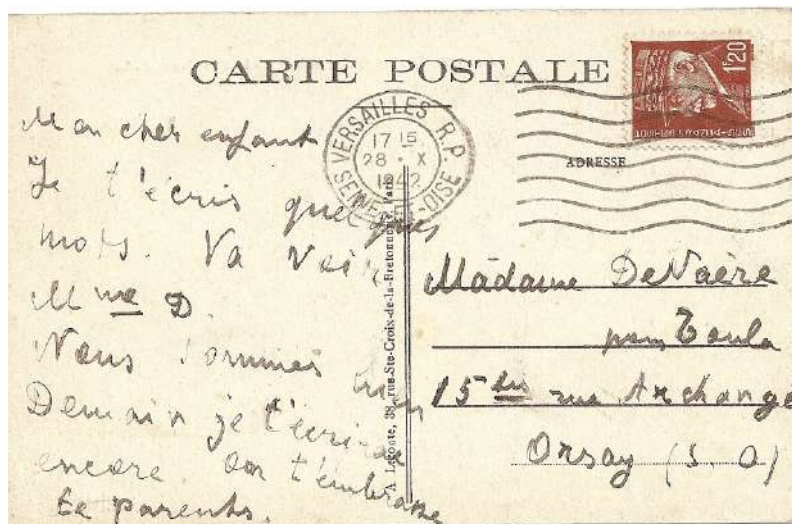 CARTE POSTALE
1F20
VERSAILLES R.P.
17 15
28 · X
1942
SEINE-ET-OISE
ADRESSE
Mon cher enfant
Je t'écris quelques
mots. Va voir
Mme D.
Nous sommes
Demain je t'écrirai
encore. On t'embrasse
te parents.
A. Leconte, 38, rue Ste-Croix-de-la-Bretonnerie, Paris
Madame DeVaère
pour Toula
15 bis rue Archangé
Orsay (S. O)